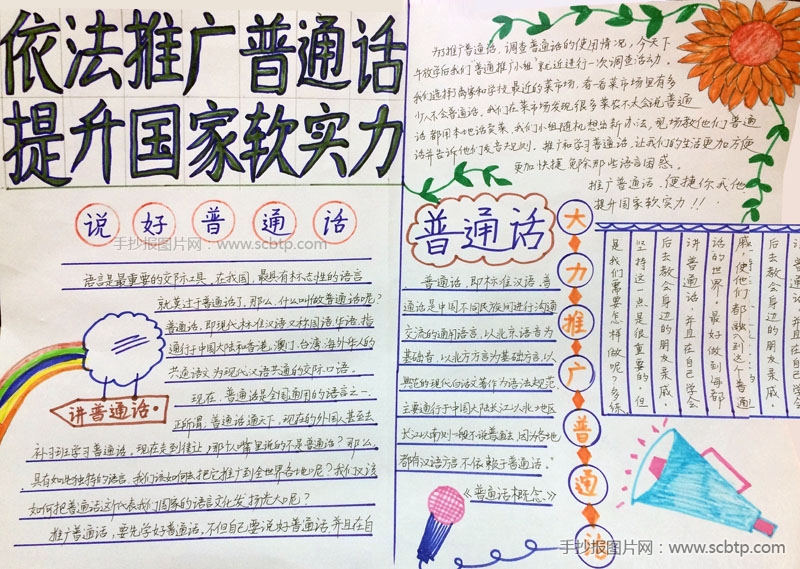 依法推广普通话
提升国家软实力
说好普通话
手抄报图片网：www.scbtp.com
语言是最重要的交际工具，在我国，最具有标志性的语言
就莫过于普通话了，那么，什么叫做普通话呢？
普通话，即现代标准汉语又称国语、华语，指
通行于中国大陆和香港、澳门、台湾、海外华人的
共通语文为现代汉语共通的交际口语。
现在，普通话是全国通用的语言之一，
正所谓，普通话通天下，现在的外国人甚至去
补习班学习普通话，现在走到街上，哪个人嘴里说的不是普通话？那么，
具有如此独特的语言，我们该如何去把它推广到全世界各地呢？我们又该
如何把普通话这个代表我们国家的语言文化发扬光大呢？
推广普通话，要先学好普通话，不但自己要说好普通话，并且在自
讲普通话
为了推广普通话，调查普通话的使用情况，今天下
午放学后我们“普通推广小组”就近进行一次调查活动。
我们选择了离家和学校最近的菜市场，看一看菜市场里有多
少人不会普通话。我们在菜市场发现很多菜农不大会说普通
话，都用本地话卖菜，我们小组随机想出新办法，现场教他们普通
话并告诉他们发音规则，推广和学习普通话，让我们的生活更加方便
更加快捷，免除那些语言困惑。
推广普通话，便捷你我他，
提升国家软实力！！
普通话
普通话，即标准汉语，普
通话是中国不同民族间进行沟通
交流的通用语言，以北京语音为
基础音，以北方方言为基础方言，以
典范的现代白话文著作为语法规范
主要通行于中国大陆长江以北地区
长江以南则一般不说普通话，因各地
都有汉语方言，不依赖于普通话。”
《普通话概念》
大力推广普通话
后去教会身边的朋友亲戚，
讲普通话，并且在自己学会
话的世界。最好做到每都
戚，使他们都融入到这个普通
后去教会身边的朋友亲戚，
讲普通话，并且在自己学会
坚持这一点是很重要的，但
是我们需要怎样做呢？多练
手抄报图片网：www.scbtp.com